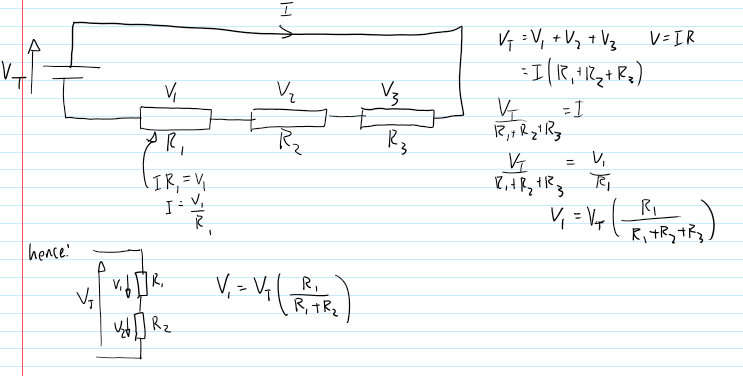 I
V_T
V₁ V₂ V₃
R₁ R₂ R₃
IR₁ = V₁
I = V₁/R₁
V_T = V₁ + V₂ + V₃ V = IR
= I(R₁ + R₂ + R₃)
V_T/(R₁ + R₂ + R₃) = I
V_T/(R₁ + R₂ + R₃) = V₁/R₁
V₁ = V_T(R₁/(R₁ + R₂ + R₃))
hence:
V_T
V₁ R₁
V₂ R₂
V₁ = V_T(R₁/(R₁ + R₂))